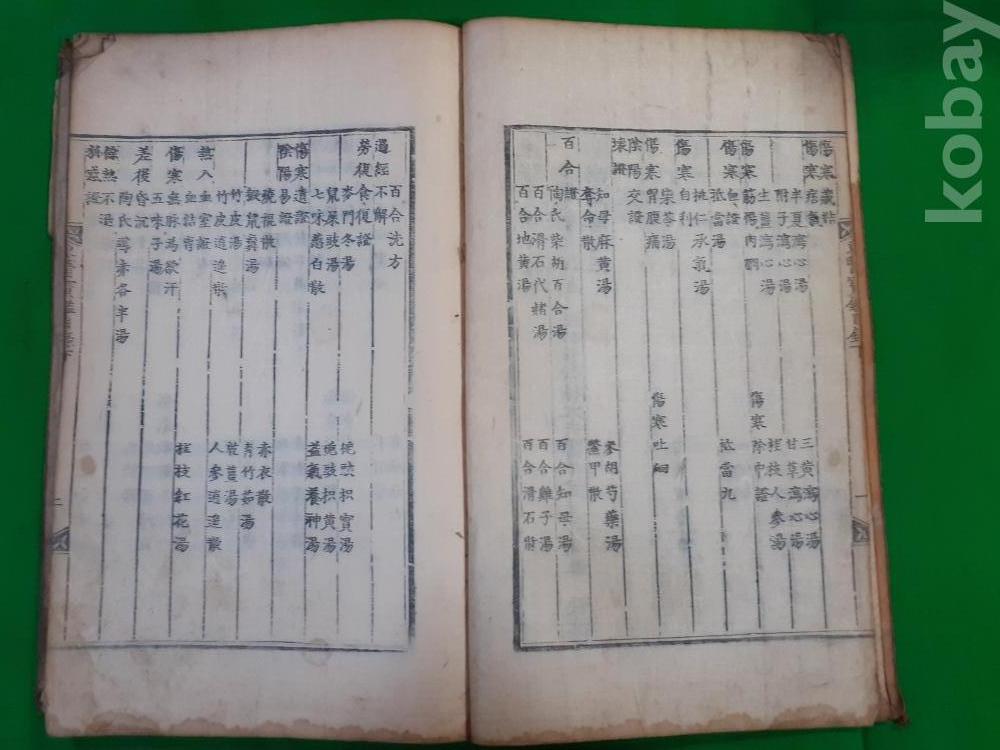 傷寒藏結
傷寒痞氣
半夏瀉心湯 三黃瀉心湯
附子瀉心湯 甘草瀉心湯
生薑瀉心湯 桂枝人參湯
傷寒筋惕肉瞤 傷寒除中證
傷寒血證
抵當湯 抵當丸
桃仁承氣湯
傷寒自利
柴苓湯
傷寒胃腹痛 傷寒吐蚘
陰陽交證
壞證
知母麻黃湯 參胡芍藥湯
奪命散 鱉甲散
百合證
陶氏柴胡百合湯 百合知母湯
百合滑石代赭湯 百合雞子湯
百合地黃湯 百合滑石散
一
百合洗方
過經不解
勞復食復證
麥門冬湯 梔豉枳實湯
鼠屎豉湯 梔豉枳黃湯
七味葱白散 益氣養神湯
傷寒遺證
陰陽易證
燒裩散 赤衣散
豭鼠糞湯 青竹茹湯
竹皮湯 乾薑湯
竹皮逍遙散 人參逍遙散
熱入血室證
血結胷 桂枝紅花湯
傷寒無脉為欲汗
五味子湯
差後昏沉
陶氏導赤各半湯
餘熱不退
二
kobay